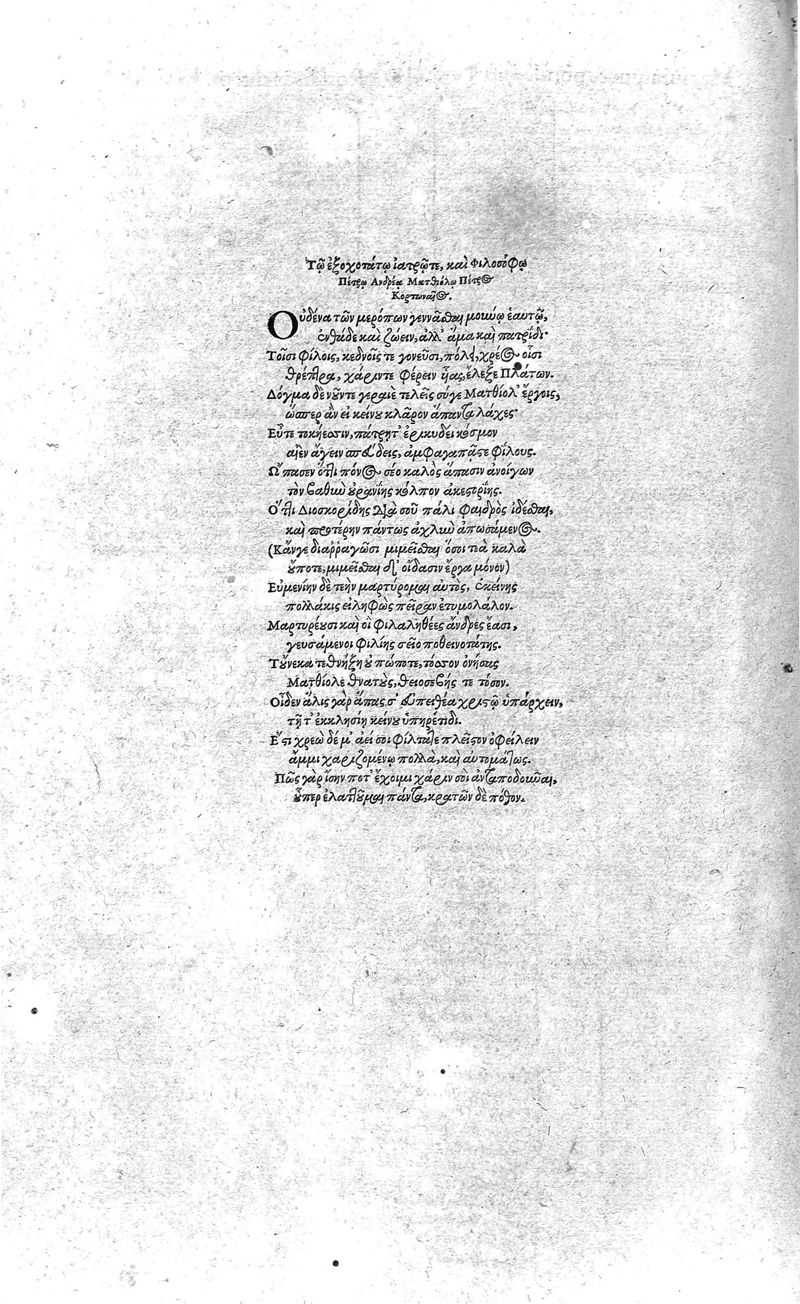 Τῷ ἐξοχοτάτῳ ἰατρῷτε, καὶ Φιλοσόφῳ
Πέτρῳ Ἀνδρέᾳ Ματθιόλῳ Πέτρος
Κορτωναῖος.
Οὐδένα τῶν μερόπων γεννᾶσθαι μούνῳ ἑαυτῷ,
ἐνθάδε καὶ ζώειν, ἀλλ' ἅμα καὶ πατρίδι·
Τοῖσι φίλοις, κεδνοῖς τε γονεῦσι, πόλει, χρέος οἷσι
θρέπτρα, χάριντε φέρειν ἧας, ἔλεξε Πλάτων.
Δόγμα δὲ νοῦντε γεραιὲ τελεῖς σύγε Ματθίολ' ἔργοις,
ὥσπερ ἂν εἰ κείνου κλᾶρον ἅπαντα λάχες·
Εὖτε τοκήεσσιν, πάτρῃτ' ἐρικυδέι κόσμον
αἰὲν ἄγειν σπεύδεις, ἀμφαγαπᾷς τε φίλους.
Ὤπασεν ὅττι πόνος σέο καλὸς ἅπασιν ἀνοίγων
τὸν βαθὺν οὐρανίης κόλπον ἀκεστορίης.
Ὅττι Διοσκορίδης διὰ σοῦ πάλι φαιδρὸς ἰδέσθαι,
καὶ προτέρην πάντως ἀχλὺν ἀπωσάμενος.
(Κἄνγε διαῤῥαγῶσι μιμεῖσθαι ὅσοι τιὰ καλὰ
οὔποτε, μιμεῖσθαι δ' οἴδασιν ἔργα μόνον)
Εὐμενίην δὲ τεὴν μαρτύρομαι αὐτὸς, ἐκείνης
πολλάκις εἰληφὼς πεῖραν ἐτυμολάλον.
Μαρτυρέουσι καὶ οἱ φιλαληθέες ἄνδρες ἔασι,
γευσάμενοι φιλίης σεῖο ποθεινοτάτης.
Τοὔνεκα τεθνήξῃ οὐ πώποτε, τόσσον ὀνήσας
Ματθίολε θνατοὺς, θειοσεβής τε τόσον.
Οἶδεν ἅλις γὰρ ἅπας σ' εὐπειθέα χριστῷ ὑπάρχειν,
τῇ τ' ἐκκλησίῃ κείνου ὑπηρέτιδι.
Ἔστι χρεὼ δέ μ' ἀεί σοι φίλτατε πλεῖστον ὀφείλειν
ἄμμι χαριζομένῳ πολλὰ, καὶ αὐτομάτως.
Πῶς γὰρ ἴσην ποτ' ἔχοιμι χάριν σοὶ ἀνταποδοῦναι,
οὗπερ ἐλαττοῦμαι πάντα, κρατῶν δὲ πόθον.